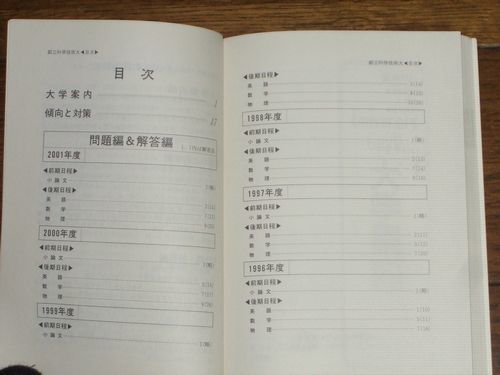 都立科学技術大◀目次▶
目次
大学案内 1
傾向と対策 17
問題編&解答編
2001年度
◀前期日程▶
小論文
◀後期日程▶
英語
数学
物理
2000年度
◀前期日程▶
小論文
◀後期日程▶
英語
数学
物理
1999年度
◀前期日程▶
小論文
都立科学技術大◀目次▶
◀後期日程▶
英語
数学
物理
1998年度
◀前期日程▶
小論文
◀後期日程▶
英語
数学
物理
1997年度
◀前期日程▶
小論文
◀後期日程▶
英語
数学
物理
1996年度
◀前期日程▶
小論文
◀後期日程▶
英語
数学
物理